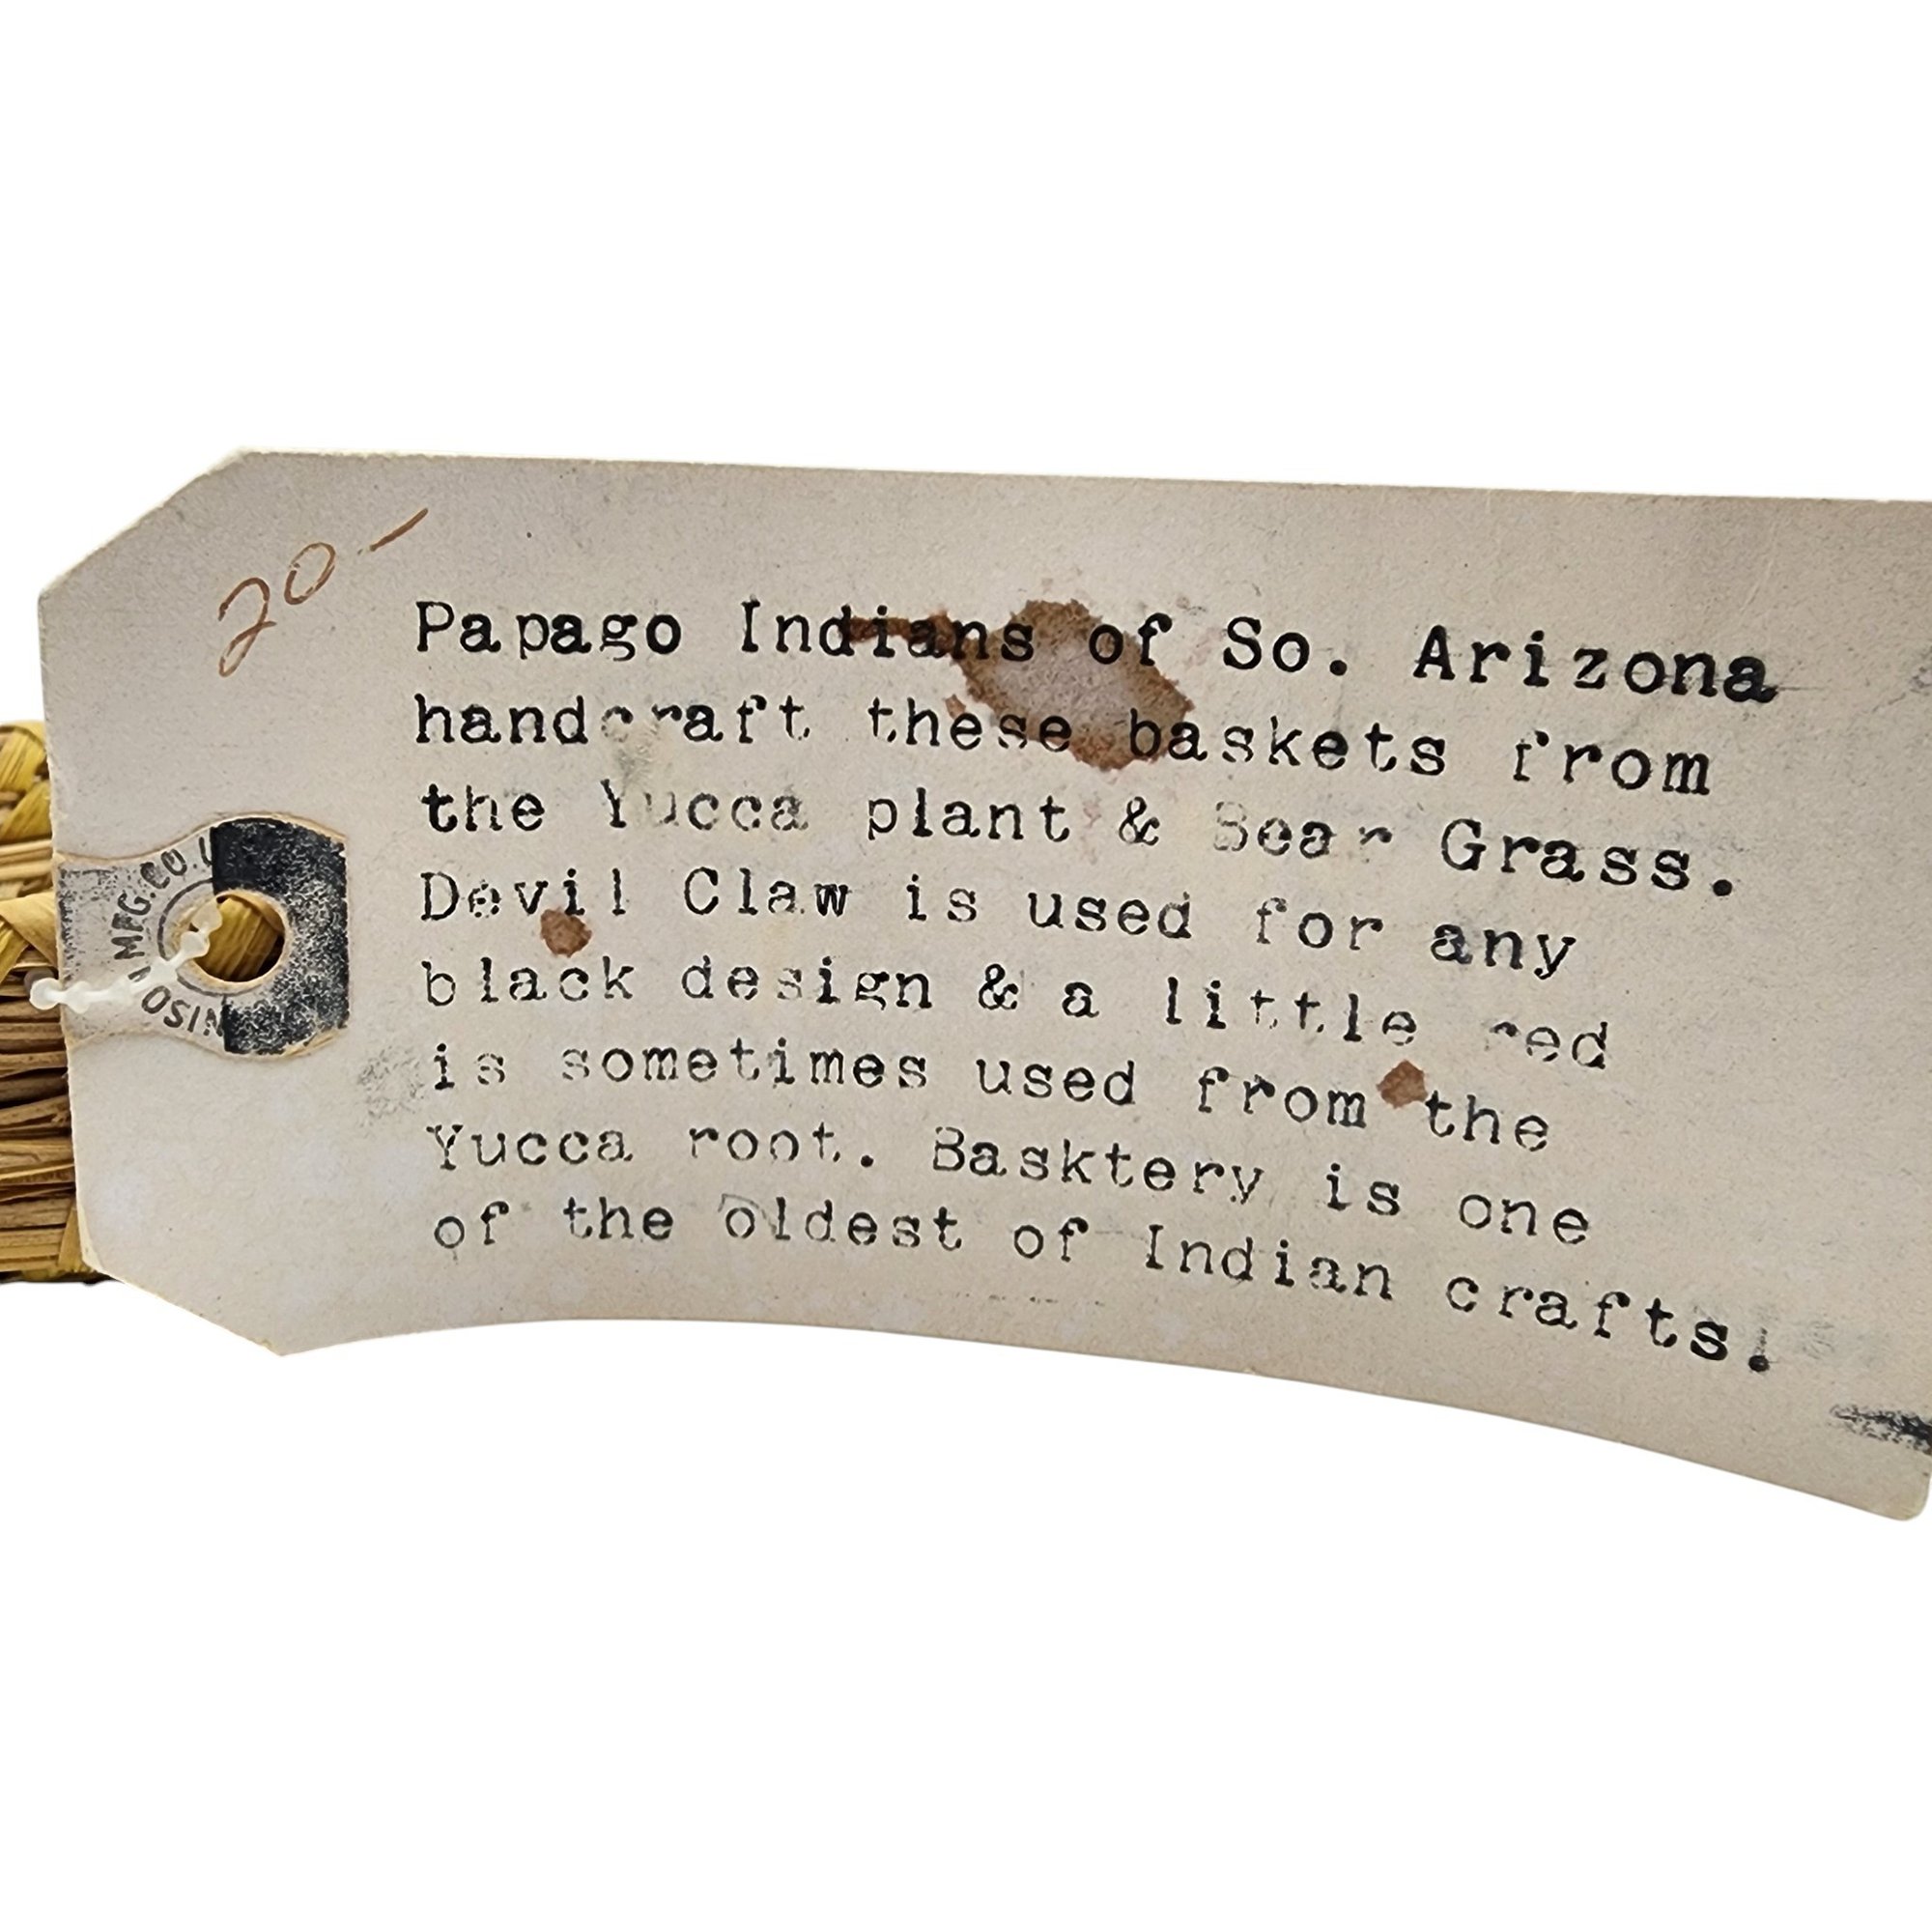 20-
Papago Indians of So. Arizona
handcraft these baskets from
the Yucca plant & Bear Grass.
Devil Claw is used for any
black design & a little red
is sometimes used from the
Yucca root. Basktery is one
of the oldest of Indian crafts!
MFG. CO.